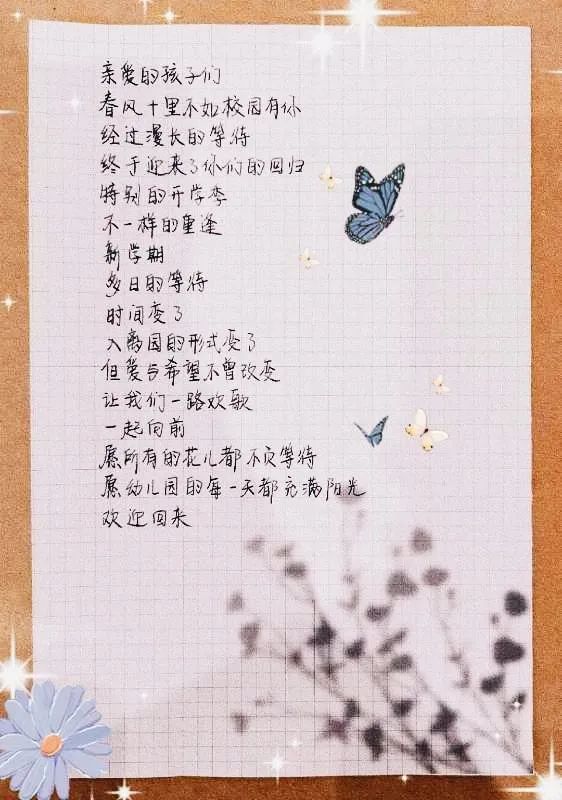 亲爱的孩子们
春风十里不如校园有你
经过漫长的等待
终于迎来了你们的回归
特别的开学季
不一样的重逢
新学期
多日的等待
时间变了
入离园的形式变了
但爱与希望不曾改变
让我们一路欢歌
一起向前
愿所有的花儿都不负等待
愿幼儿园的每一天都充满阳光
欢迎回来